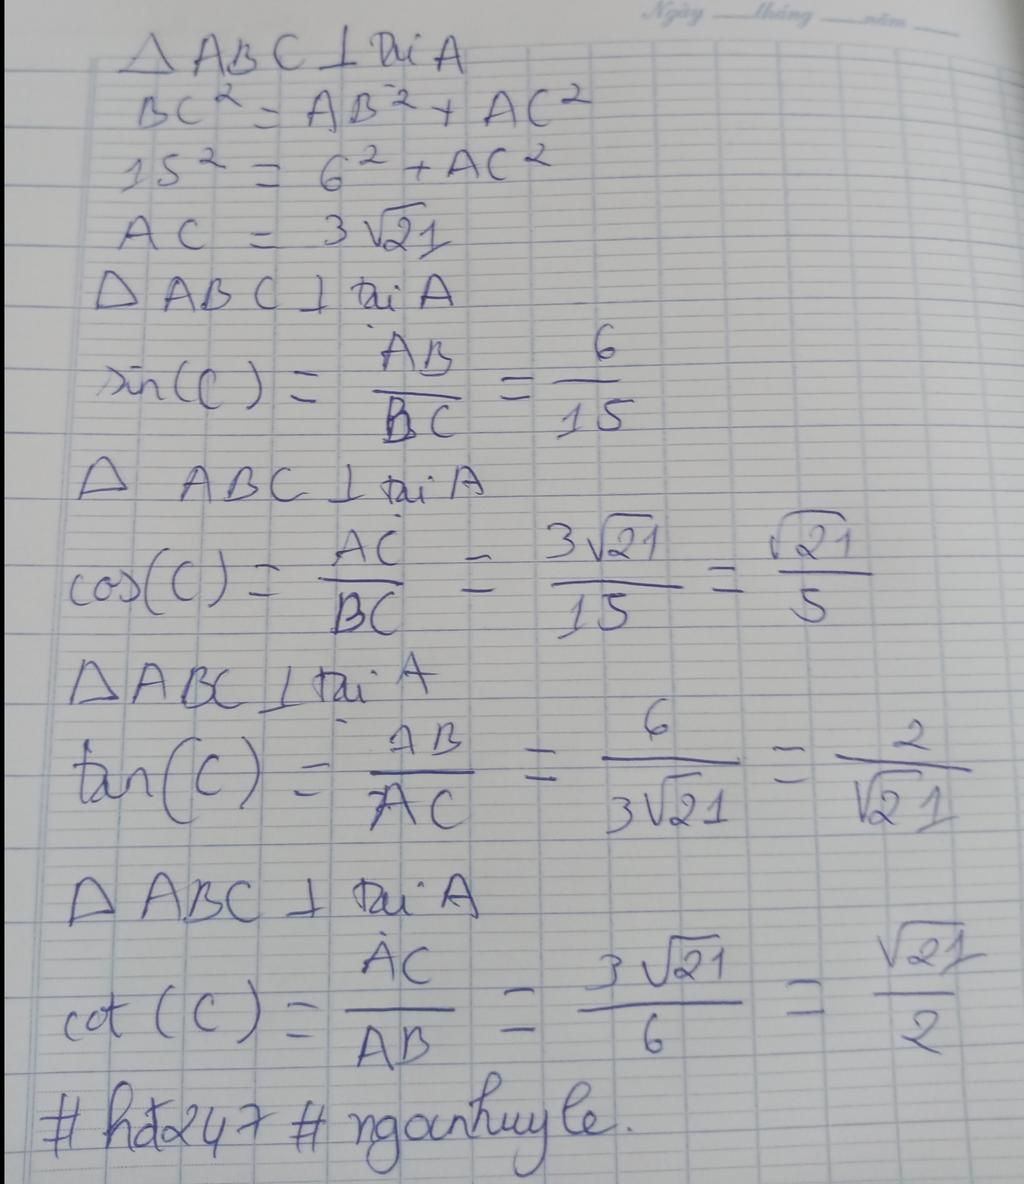 Ngày tháng năm
Δ ABC ⊥ tại A
BC² = AB² + AC²
15² = 6² + AC²
AC = 3√21
Δ ABC ⊥ tại A
sin(C) = AB/BC = 6/15
Δ ABC ⊥ tại A
cos(C) = AC/BC = 3√21/15 = √21/5
Δ ABC ⊥ tại A
tan(C) = AB/AC = 6/3√21 = 2/√21
Δ ABC ⊥ tại A
cot(C) = AC/AB = 3√21/6 = √21/2
# hđ247 # nganhuyle.